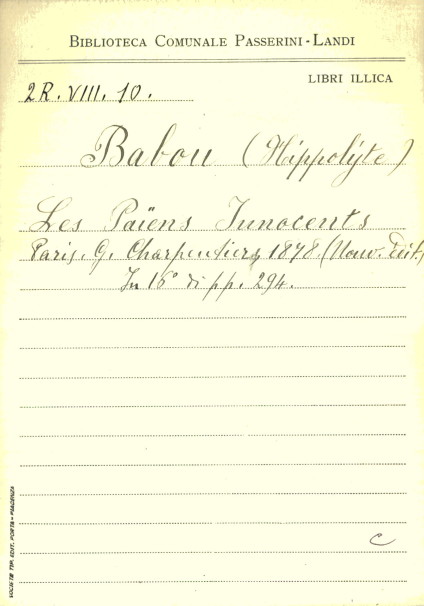 BIBLIOTECA COMUNALE PASSERINI-LANDI
LIBRI ILLICA
2R. VIII. 10.
Babou (Hippolyte)
Les Païens Innocents
Paris. G. Charpentier, 1878. (Nouv. Edit.)
In 16° di pp. 294.
C
SOCIETÀ TIP. EDIT. PORTA - PIACENZA